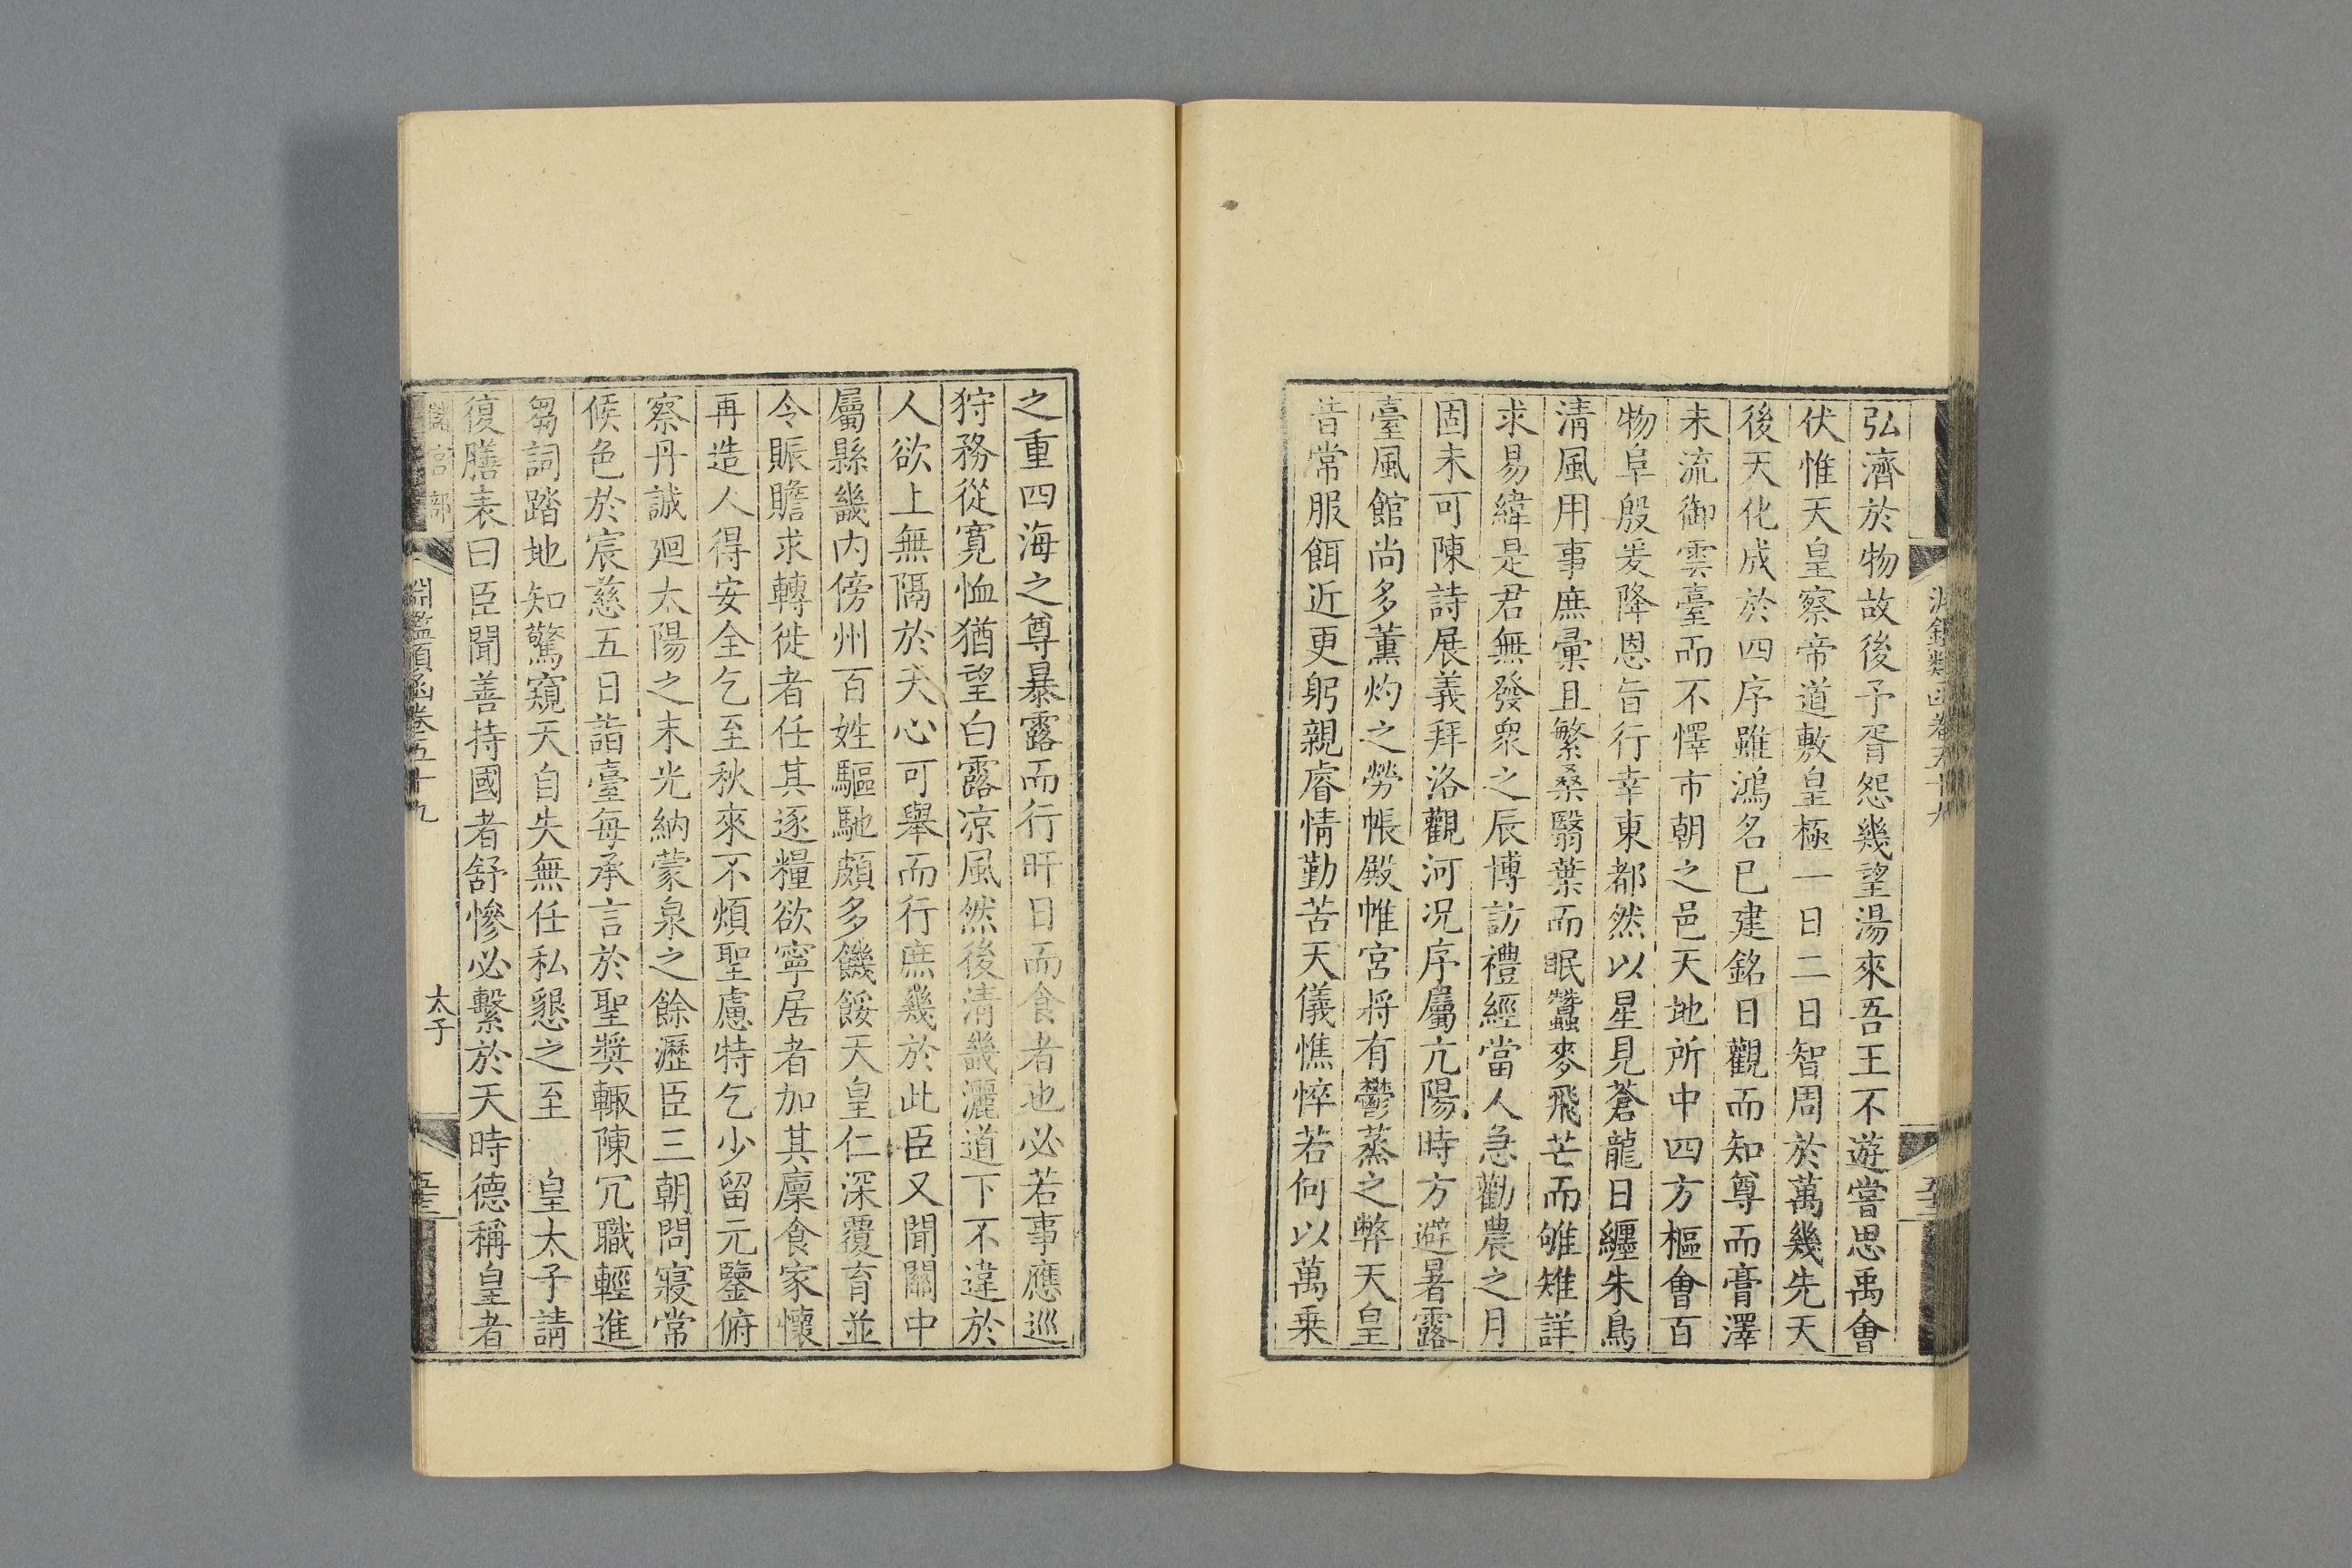 弘濟於物故後予胥怨幾望湯來吾王不遊嘗思禹會
伏惟天皇察帝道敷皇極一日二日智周於萬幾先天
後天化成於四序雖鴻名已建銘日觀而知尊而膏澤
未流御雲臺而不懌市朝之邑天地所中四方樞會百
物阜殷爰降恩旨行幸東都然以星見蒼龍日纏朱鳥
清風用事庶彙且繁桑翳葉而眠蠶麥飛芒而雊雉詳
求易緯是君無發衆之辰博訪禮經當人急勸農之月
固未可陳詩展義拜洛觀河況序屬亢陽時方避暑露
臺風館尚多薫灼之勞帳殿帷宮將有鬱蒸之弊天皇
昔常服餌近更躬親睿情勤苦天儀憔悴若何以萬乗
之重四海之尊暴露而行旰日而食者也必若事應巡
狩務從寛恤猶望白露凉風然後清畿灑道下不違於
人欲上無隔於天心可舉而行庶幾於此臣又聞關中
屬縣畿内傍州百姓驅馳頗多饑餒天皇仁深覆育並
令賑贍求轉徙者任其逐糧欲寧居者加其廩食家懷
再造人得安全乞至秋來不煩聖慮特乞少留元鑒俯
察丹誠廻太陽之末光納蒙泉之餘瀝臣三朝問寢常
候色於宸慈五日詣臺每承言於聖奬輙陳冗職輕進
芻詞踏地知驚窺天自失無任私懇之至　皇太子請
復膳表曰臣聞善持國者舒慘必繫於天時德稱皇者
淵鑑類函卷五十九
太子